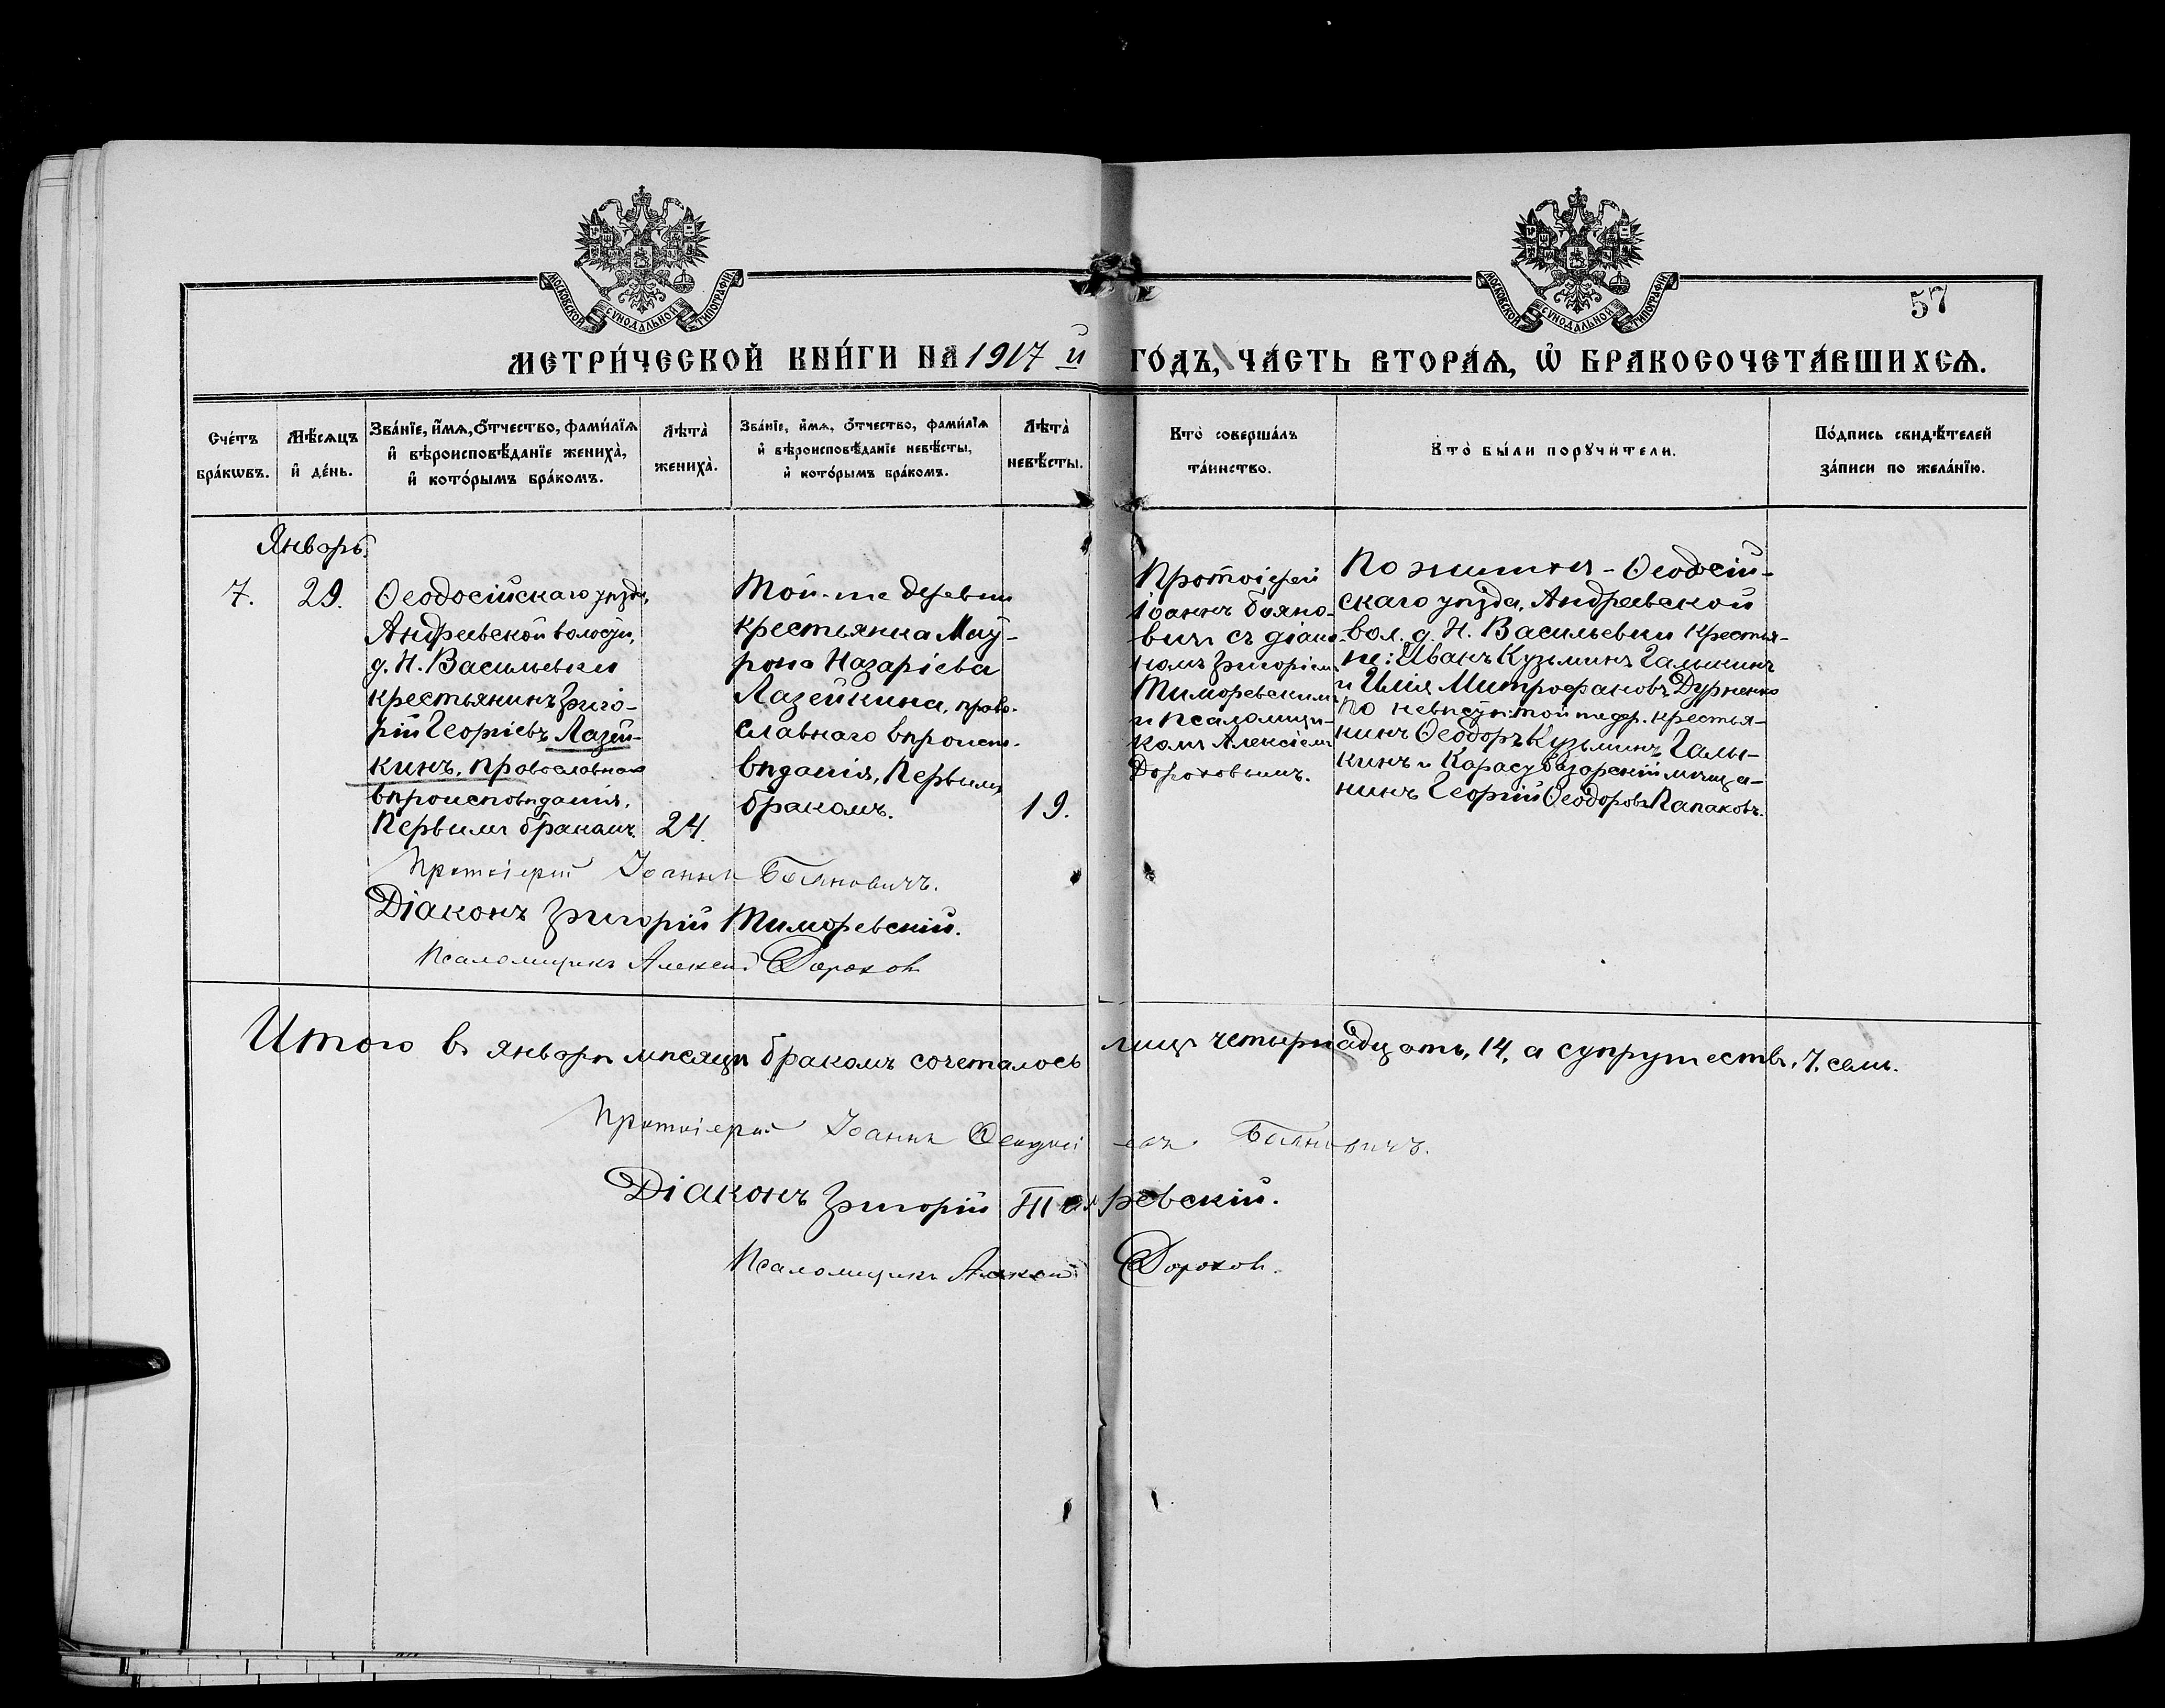 МОСКОВСКОЙ СУНОДАЛЬНОЙ ТИПОГРАФІИ
МОСКОВСКОЙ СУНОДАЛЬНОЙ ТИПОГРАФІИ
57
МЕТРИ́ЧЕСКОЙ КНИ́ГИ НА 1917 й ГО́ДЪ, ЧА́СТЬ ВТОРА́Ѧ, Ѡ҆ БРАКОСОЧЕТА́ВШИХСѦ.
Сче́тъ
бра́кѡвъ.
Мѣ́сѧцъ
и҆ де́нь.
Зва́нїе, и҆́мѧ, ѻ҆́тчество, фами́лїѧ
и҆ вѣроисповѣ́данїе жениха̀,
и҆ кото́рымъ бра́комъ.
Лѣта̀
жениха̀.
Зва́нїе, и҆́мѧ, ѻ҆́тчество, фами́лїѧ
и҆ вѣроисповѣ́данїе невѣ́сты,
и҆ кото́рымъ бра́комъ.
Лѣта̀
невѣ́сты.
Кто̀ соверша́лъ
та́инство.
Кто̀ бы́ли порꙋчи́тели.
По́дпись свидѣ́телей
за́писи по жела́нїю.
Январь.
7.
29.
Ѳеодосійскаго уѣзда,
Андреевской волости,
д. Н. Васильевки
крестьянинъ Григо-
рій Георгіевъ Лазей-
кинъ, православнаго
вѣроисповѣданія,
Первымъ бракомъ.
24.
Той-же деревни
крестьянка Мау-
рона Назаріева
Лазейкина, право-
славнаго вѣроиспо-
вѣданія, Первымъ
бракомъ.
19.
Протоіерей
Іоаннъ Бояно-
вичъ съ діако-
номъ Григоріемъ
Тиморевскимъ
и псаломщи-
комъ Алексіемъ
Дороховымъ.
По женихѣ - Ѳеодосій-
скаго уѣзда, Андреевской
вол. д. Н. Васильевки крестья-
не: Иванъ Кузьминъ Галыкинъ
и Илія Митрофановъ Дурненко
По невѣстѣ: той же дер. крестья-
нинъ Ѳеодоръ Кузьминъ Галы-
кинъ и Карасубазарскій мѣща-
нинъ Георгій Ѳеодоровъ Папаковъ.
Протоіерей Іоаннъ Бояновичъ.
Діаконъ Григорій Тиморевскій.
Псаломщикъ Алексій Дорохов
Итого въ январѣ мѣсяцѣ бракомъ сочеталось лицъ четырнадцать, 14, а супружествъ, 7, семь.
Протоіерей Іоаннъ Бояновичъ.
Діаконъ Григорій
Псаломщикъ Алексій Дорохов.